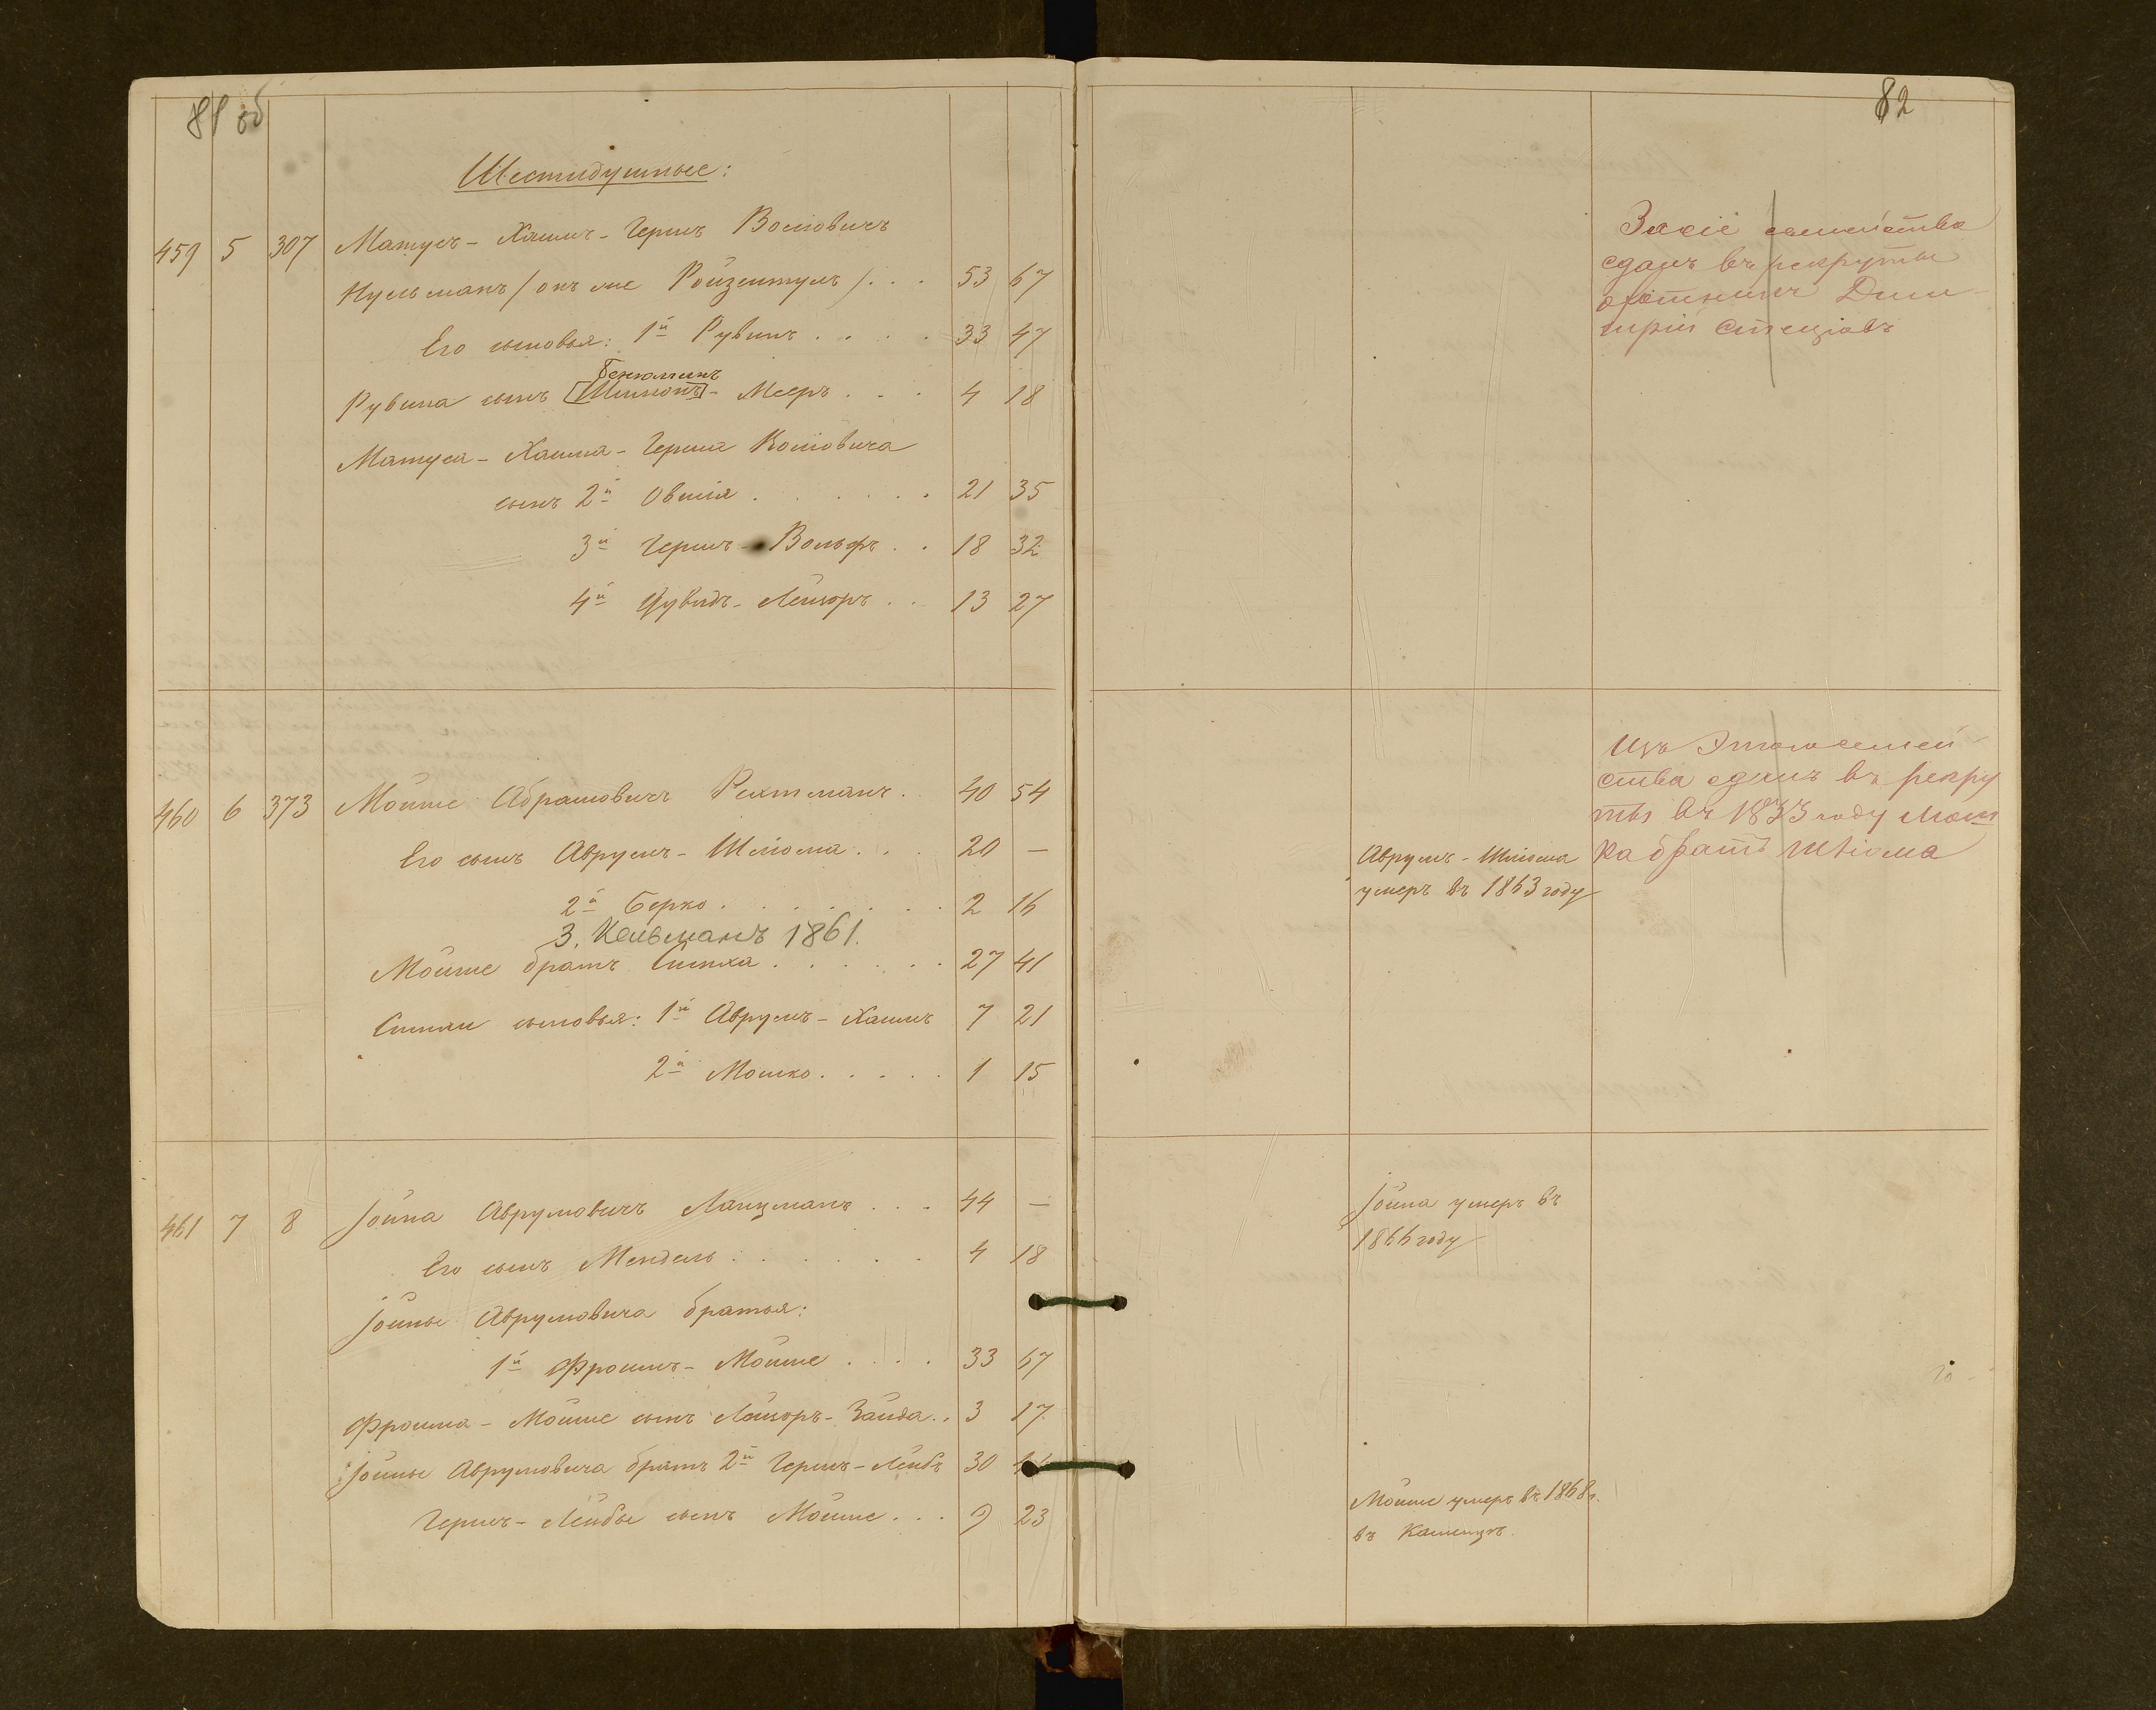 81 об
Шестидушные:
459 5 307 Матусъ-Хаимъ-Гершъ Волiовичъ
Нусьманъ (онъ же Ройзентулъ) . . . 53 67
Его сыновья: 1й Рувинъ . . . . 33 47
Бенюминъ
Рувина сынъ [Шимонъ]- Мееръ . . . 4 18
Матуса-Хаима-Герша Волiовича
сынъ 2й Овшiя . . . . . . 21 35
3й Гершъ-Вольфъ . . 18 32
4й Дувидъ-Лейзоръ . . 13 27
460 6 373 Мойше Абрамовичъ Рехтманъ . 40 54
Его сынъ Аврумъ-Шлiома . . . 20 —
2й Берко . . . . . . . 2 16
3. Кельманъ 1861.
Мойше братъ Симха . . . . . . 27 41
Симхи сыновья: 1й Аврумъ-Хаимъ 7 21
2й Мошко . . . . . 1 15
461 7 8 Iойна Аврумовичъ Ланцманъ . . . 44 —
Его сынъ Мендель . . . . . . 4 18
Iойны Аврумовича братья:
1й Фроимъ-Мойше . . . . 33 67
Фроима-Мойше сынъ Лейзоръ-Зайда . . 3 17
Iойны Аврумовича братъ 2й Гершъ-Лейбъ 30
Гершъ-Лейбы сынъ Мойше . . . 9 23
82
За сiе семейство
сданъ въ рекруты
охотникъ Дми-
трiй
Изъ этого семей-
ства сданъ въ рекру
ты въ 1853 году Мош
ка братъ Шлiома
Аврумъ-Шлiома
умеръ въ 1863 году
Iойна умеръ въ
1866 году
Мойше умеръ въ 1868 г.
въ Каменцѣ.